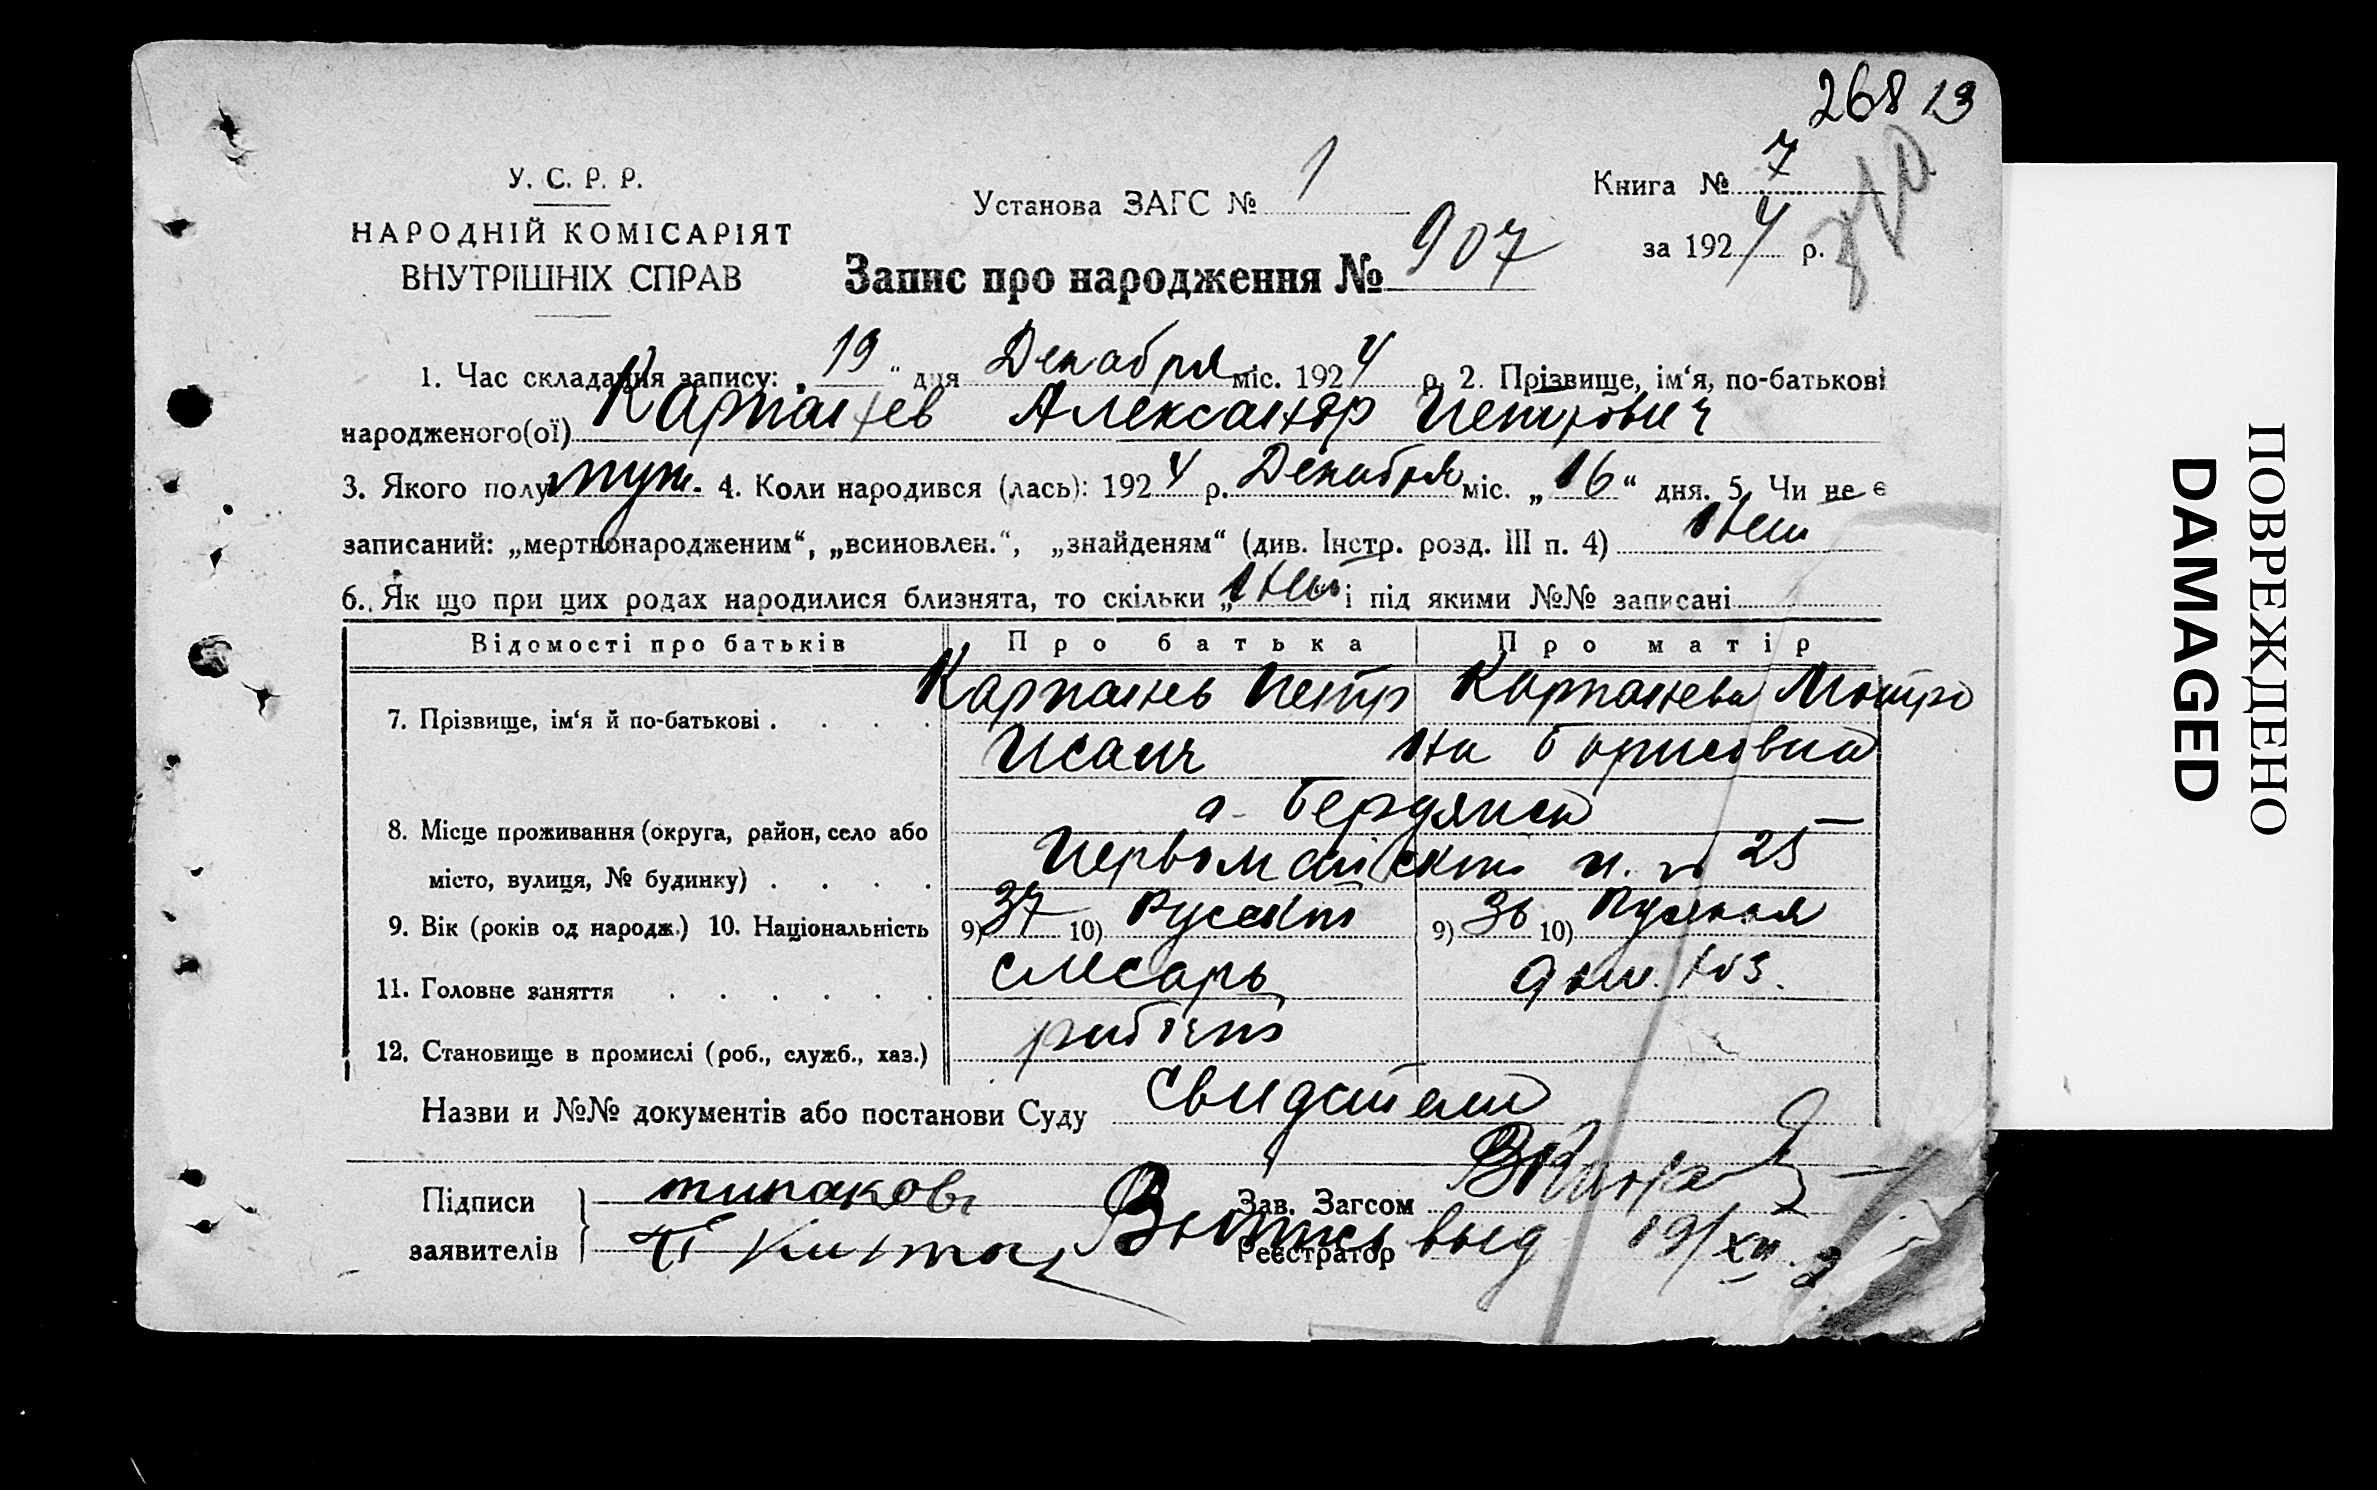 268 13
У. С. Р. Р.
НАРОДНІЙ КОМІСАРІЯТ
ВНУТРІШНІХ СПРАВ
Установа ЗАГС № 1
Книга № 7
за 1924 р.
Запис про народження № 907
1. Час складання запису: „19“ дня Декабря міс. 1924 р. 2. Прізвище, ім‘я, по-батькові
народженого(ої) Александр Петрович
3. Якого полу муж. 4. Коли народився (лась): 1924 р. Декабря міс. „16“ дня. 5. Чи не є
записаний: „мертвонародженим“, „всиновлен.“, „знайденям“ (див. Інстр. розд. III п. 4) нет
6. Як що при цих родах народилися близнята, то скільки „нет“ і під якими №№ записані
Відомості про батьків Про батька Про матір
7. Прізвище, ім‘я й по-батькові . . . . Петр Мотро
Исаич на Борисовна
8. Місце проживання (округа, район, село або г. Бердянск
місто, вулиця, № будинку) . . . . 25
9. Вік (років од народж.) 10. Національність 9) 37 10) Русский 9) 36 10) Русская
11. Головне заняття . . . . . . слесарь дом. хоз.
12. Становище в промислі (роб., служб., хаз.) рабочий
Назви и №№ документів або постанови Суду
Підписи
заявителів
Зав. Загсом
Реєстратор
Выпись выд 19/XII
ПОВРЕЖДЕНО
DAMAGED